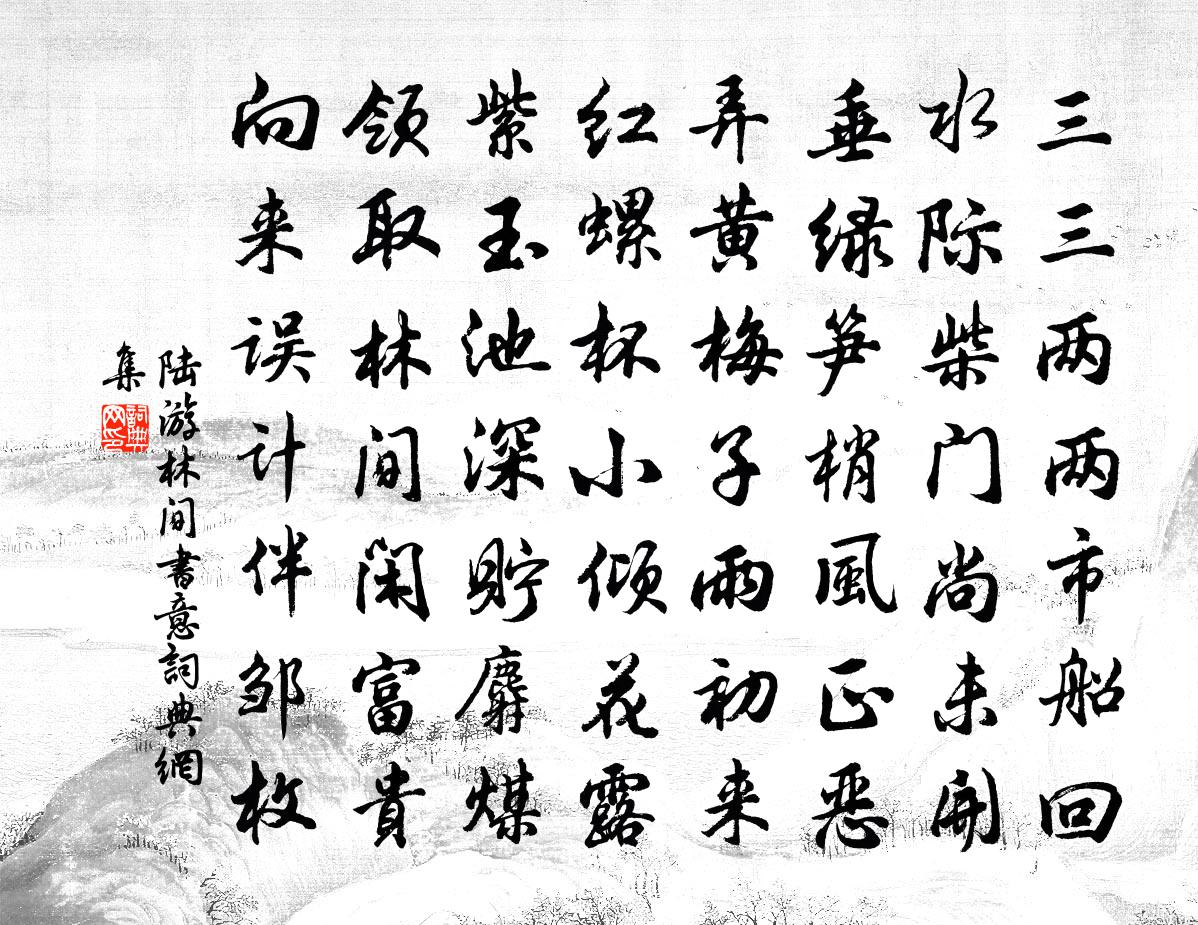 三三两两市船回
水际柴门尚未開
垂绿笋梢風正恶
弄黄梅子雨初来
红螺杯小倾花露
紫玉池深贮麝煤
领取林间闲富貴
向来误计伴邹枚
陆游林间書意詞典網
集
詞典网印